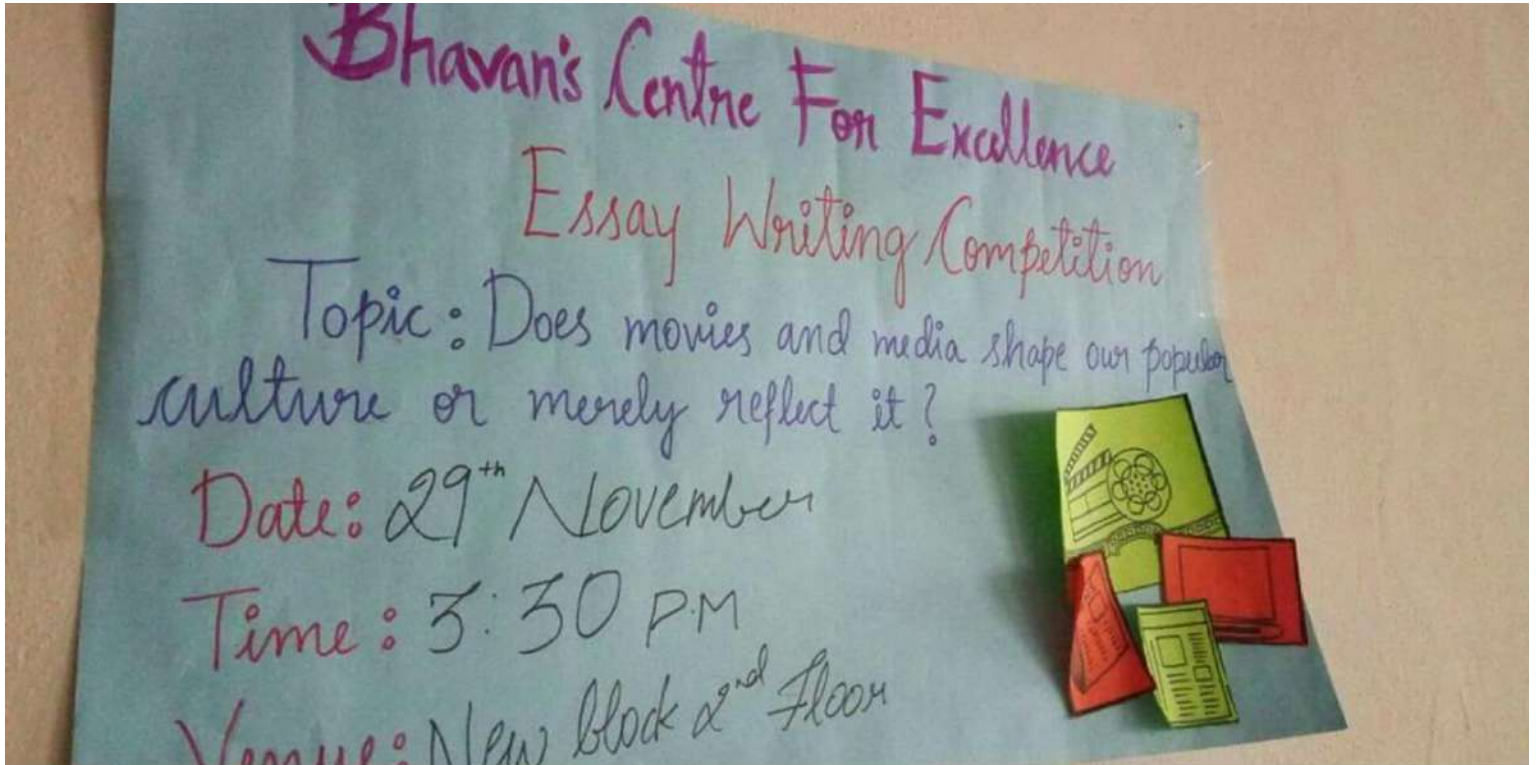 Bhavan's Centre For Excellence
Essay Writing Competition
Topic: Does movies and media shape our popular
culture or merely reflect it?
Date: 29th November
Time: 3:30 P.M
Venue: New block 2nd Floor